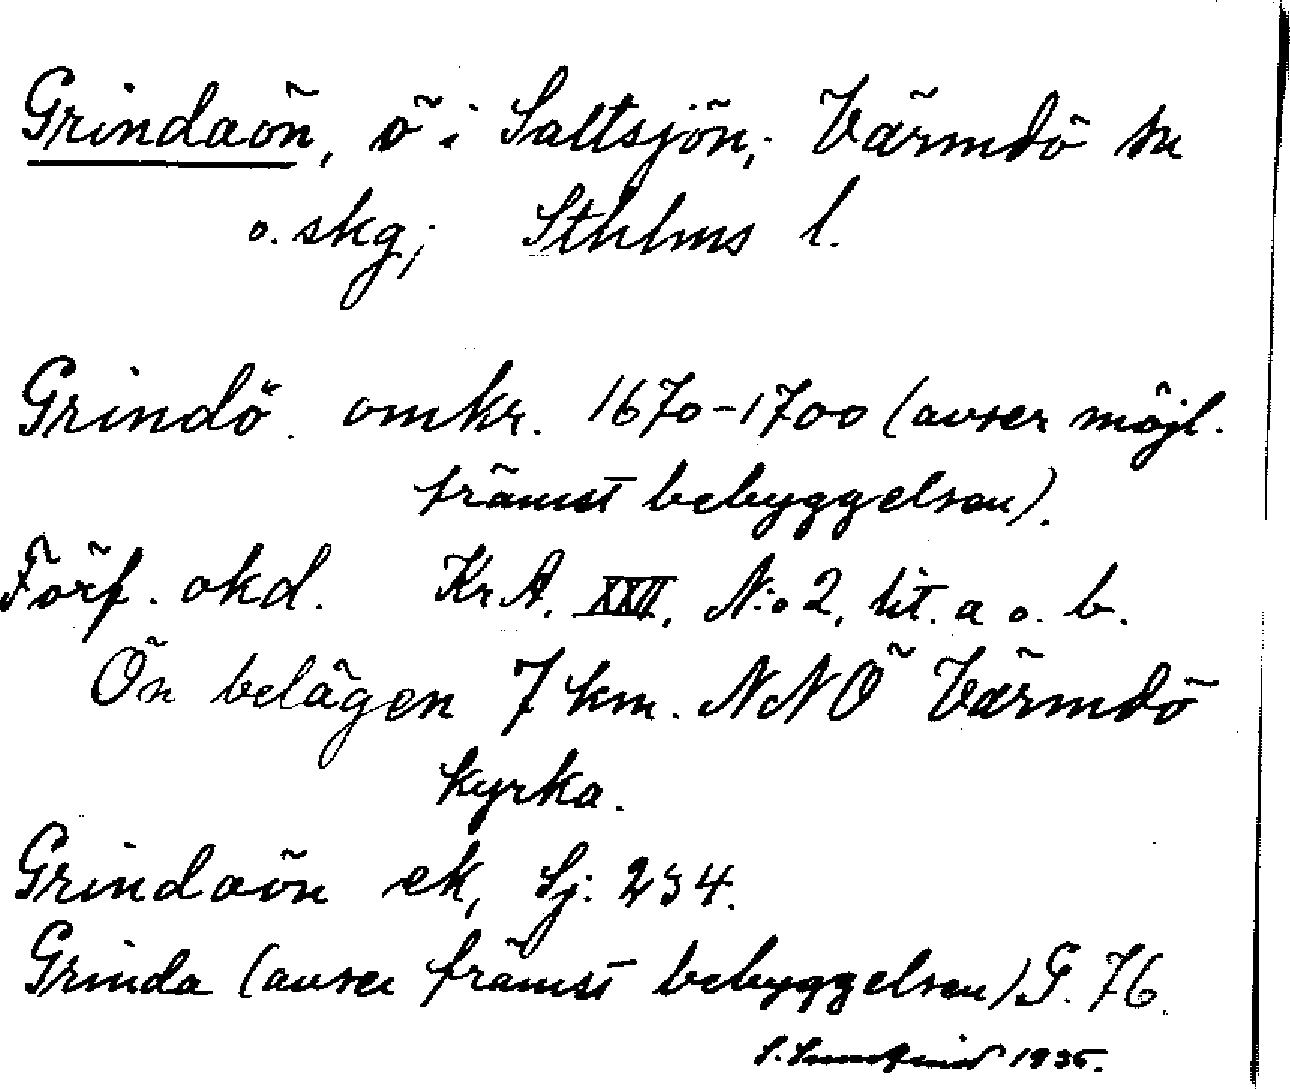 Grindaön, ö i Saltsjön; Värmdö sn
o. skg; Sthlms l.
Grindö omkr. 1670-1700 (avser möjl.
främst bebyggelsen).
Förf. okd. KrA. XXII, N:o 2, lit. a o. b.
Ön belägen 7 km. NNÖ Värmdö
kyrka.
Grindaön ek, Sj: 234.
Grinda (avser främst bebyggelsen) G. 76.
S. 1935.